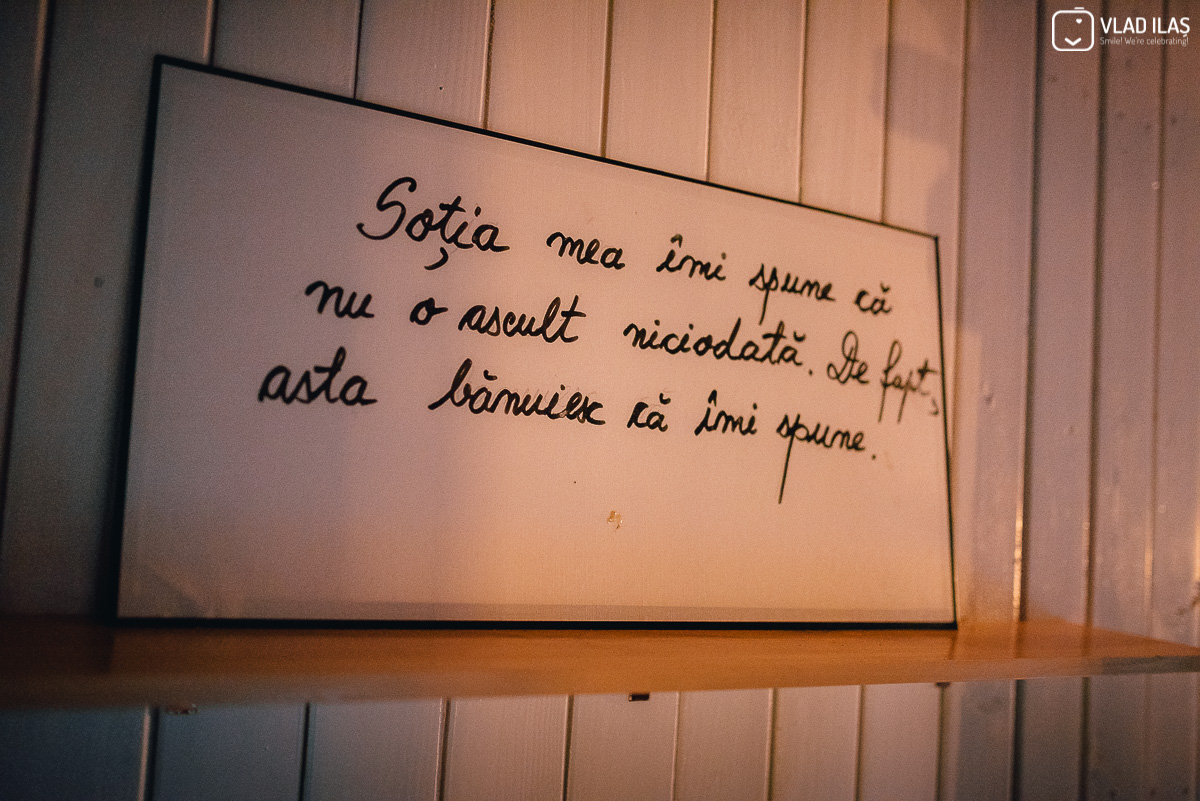 VLAD ILAȘ
Smile! We're celebrating!
Soția mea îmi spune că
nu o ascult niciodată. De fapt,
asta bănuiesc că îmi spune.